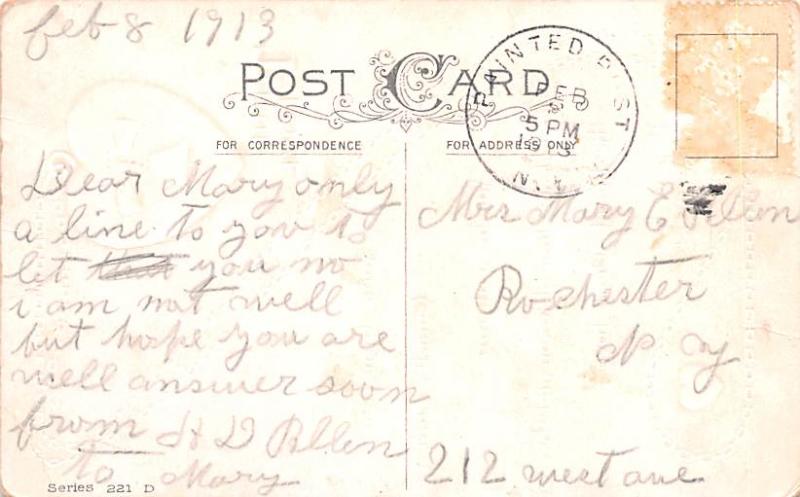 feb 8 1913
POST CARD
PAINTED POST
FEB
5 PM
1913
N.Y.
FOR CORRESPONDENCE
FOR ADDRESS ONLY
Dear Mary only
a line to you to
let you no
i am not well
but hope you are
well answer soon
from H D Allen
to Mary
Mrs Mary E Allen
Rochester
N Y
212 west ave
Series 221 D